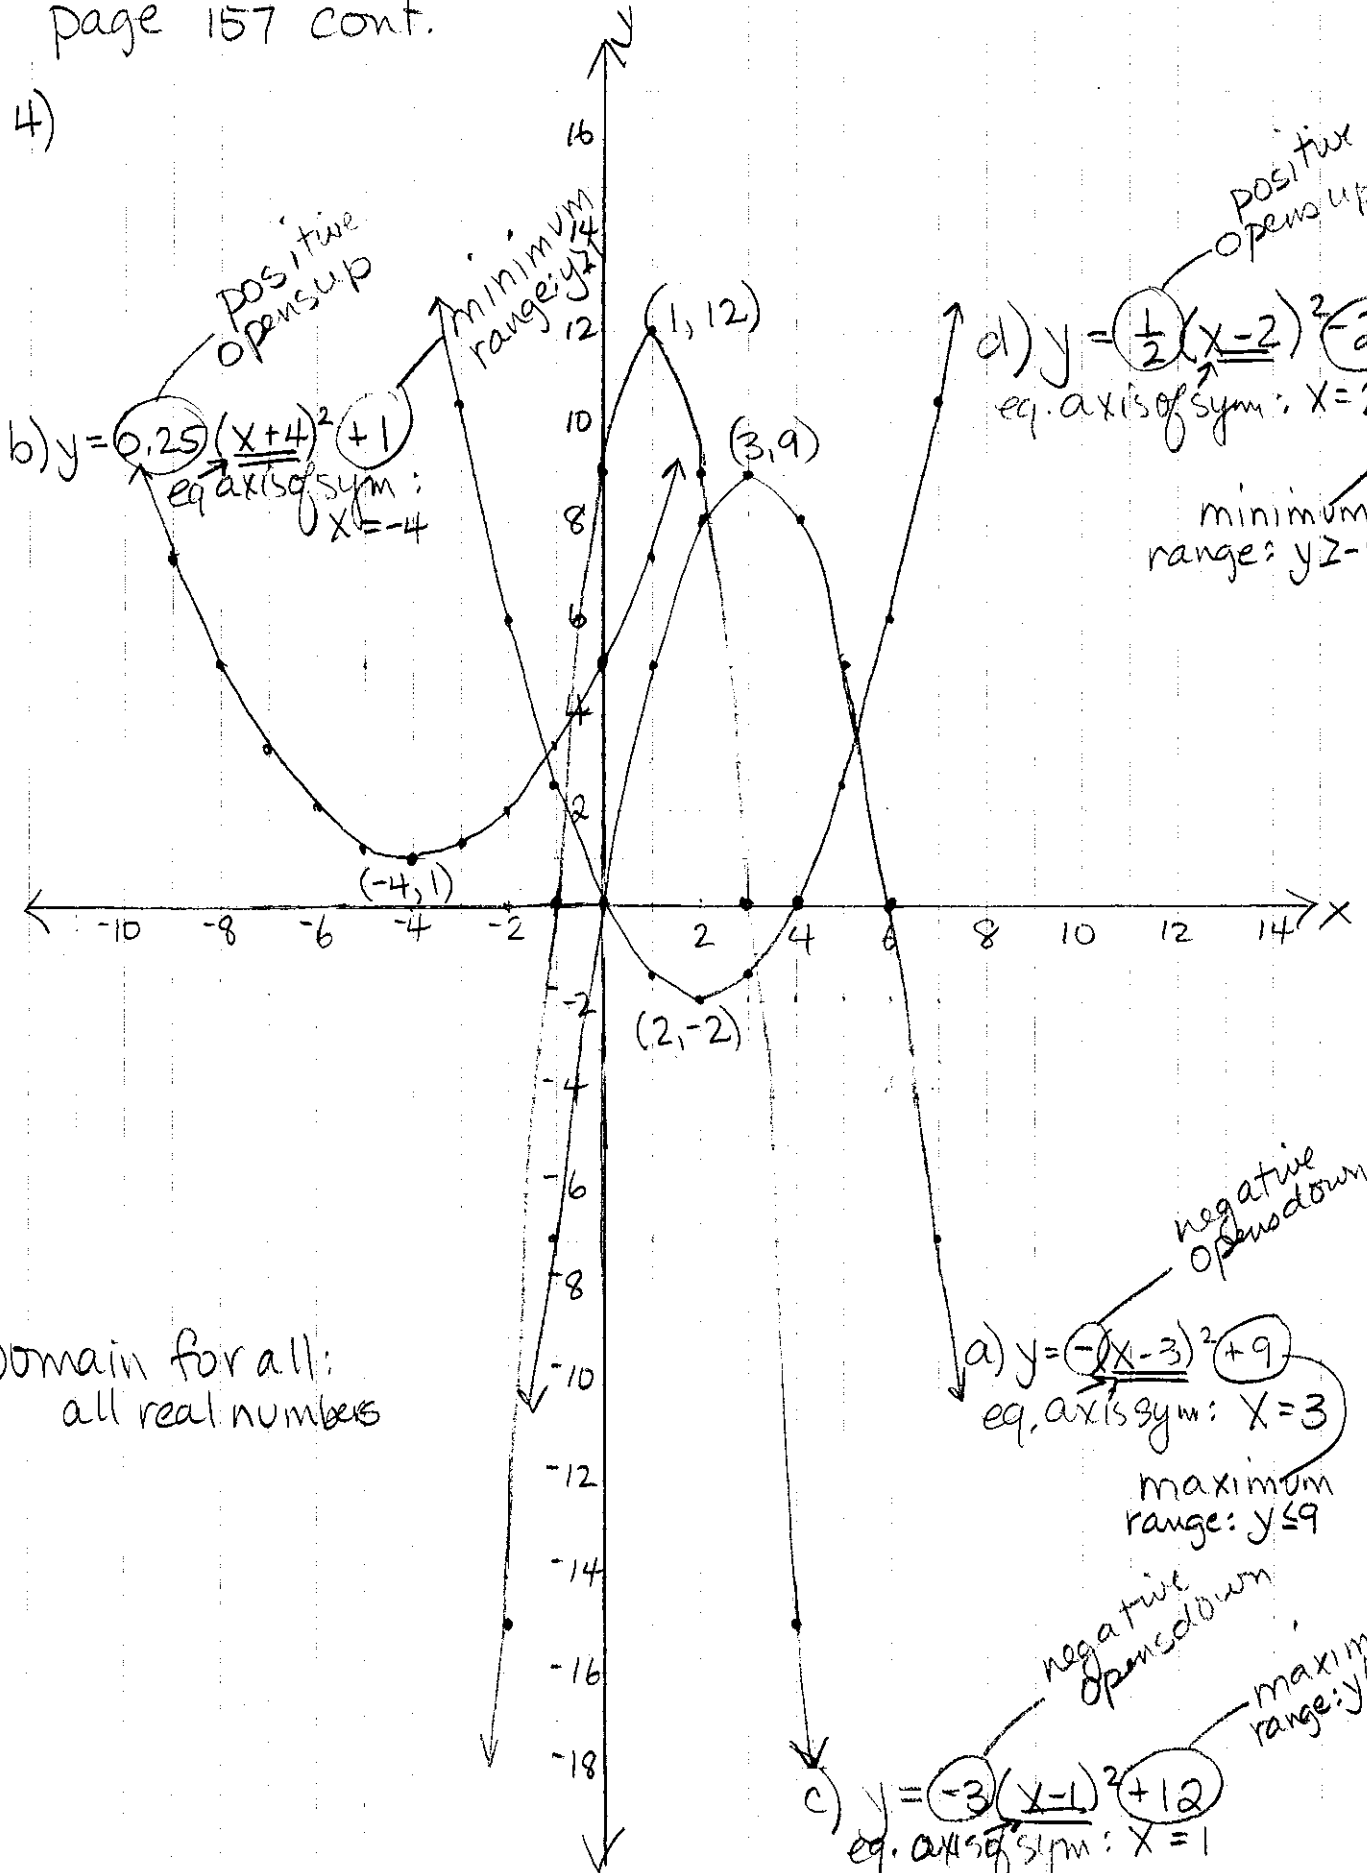 page 157 cont.
4)
y
16
14
12
10
8
6
4
2
-2
-4
-6
-8
-10
-12
-14
-16
-18
-10 -8 -6 -4 -2 2 4 6 8 10 12 14 x
positive
opens up
minimum
range: y≥1
b) y = 0.25(x+4)² +1
eq axis of sym:
x = -4
(-4, 1)
(1, 12)
(3, 9)
(2, -2)
positive
opens up
d) y = ½(x-2)² -2
eq. axis of sym: x = 2
minimum
range: y≥-
negative
opens down
a) y = -(x-3)² +9
eq. axis sym: x = 3
maximum
range: y≤9
Domain for all:
all real numbers
negative
opens down
maxim
range: y
c) y = -3(x-1)² +12
eq. axis of sym: x = 1